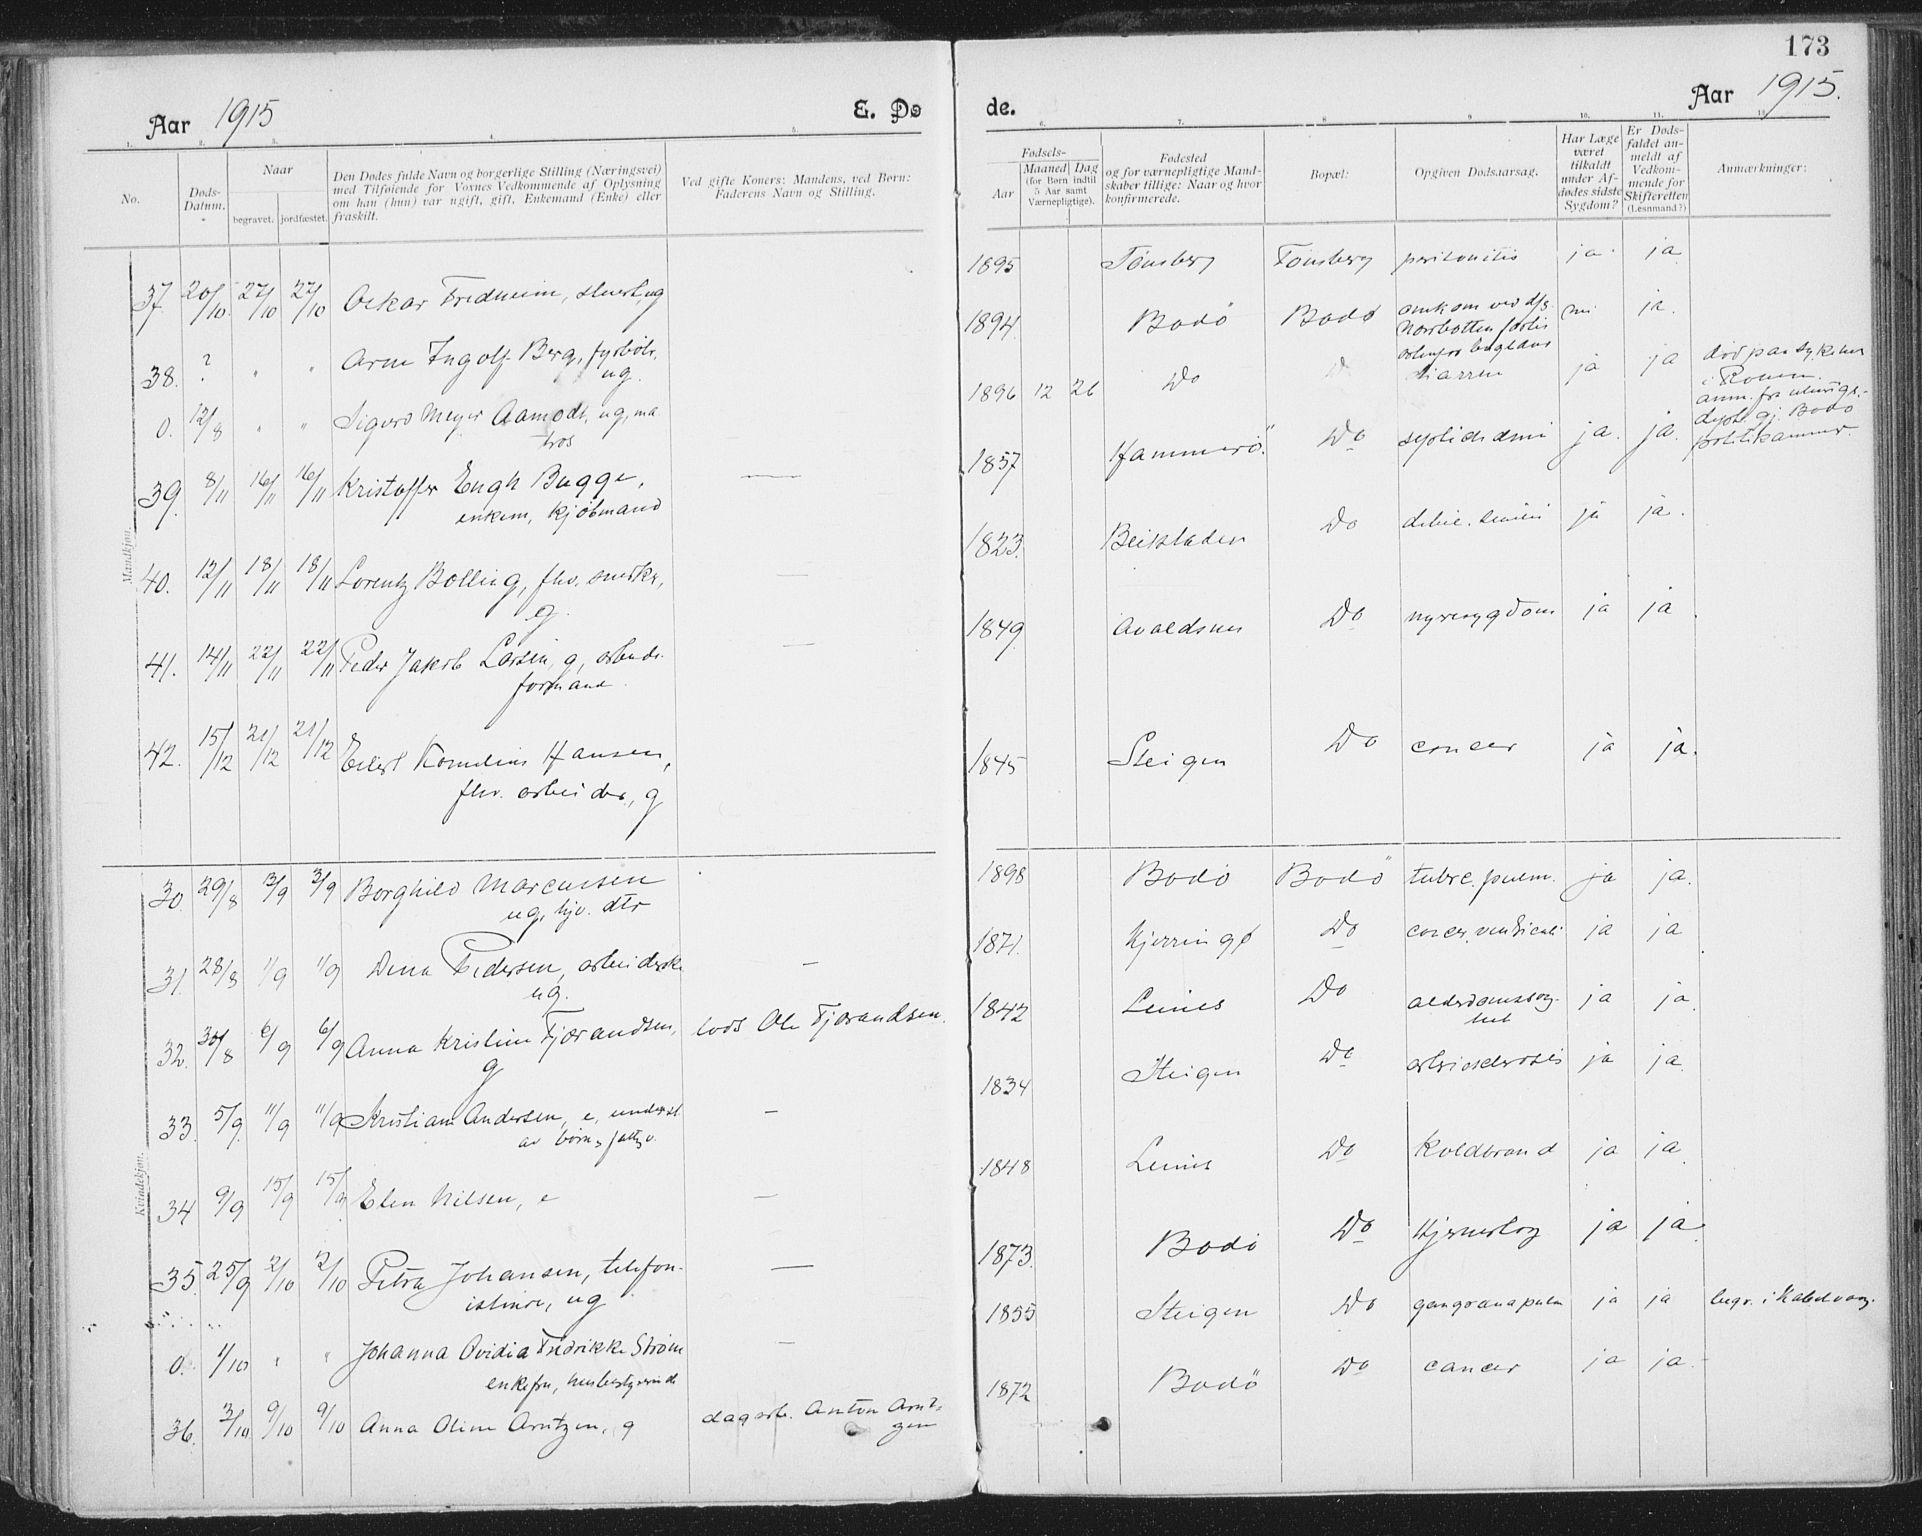 173
Aar 1915
E. Dø
de.
Aar 1915.
1. 2. 3. 4. 5. 6. 7. 8 9 10. 11. 12.
No.
Døds-
Datum.
Naar
begravet. jordfæstet.
Den Dødes fulde Navn og borgerlige Stilling (Næringsvei)
med Tilføiende for Voxnes Vedkommende af Oplysning
om han (hun) var ugift, gift, Enkemand (Enke) eller
fraskilt.
Ved gifte Koner: Mandens, ved Børn:
Faderens Navn og Stilling.
Fødsels-
Aar
Maaned Dag
(for Børn indtil
5 Aar samt
Værnepligtige).
Fødested
og for værnepligtige Mand-
skaber tillige: Naar og hvor
konfirmerede.
Bopæl:
Opgiven Dødsaarsag.
Har Læge
været
tilkaldt
under Af-
dødes sidste
Sygdom?
Er Døds-
faldet an-
meldt af
Vedkom-
mende for
Skifteretten
(Lesnmand?)
Anmærkninger:
Mandkjøn.
37. 20/10. 27/10 27/10 Oskar Fredheim, stuert, ug
1895 Tønsberg Tønsberg peritonitis ja. ja
38. ? " " Arne Ingolf Berg, fyrbøt.
ug.
1894. Bodö Bodø omkom ved d/s.
Norrbotten forlis
ja.
0. 12/8 " " Sigurd Meyer Aamodt, ug, ma
tros
1896 12 26 Do ja ja død paa sykehus
i Rouen.
anm. fra
Bodø
politikammer.
39. 8/11 16/11 16/11 Kristoffer Engh Bugge,
enkem, kjøbmand
1857 Hammerö. Do ja. ja.
40. 12/11 18/11 18/11 Lorentz Bolling, fhv. snekker,
g.
1823. Beitstaden Do ja ja.
41. 14/11 22/11 22/11 Peder Jakob Larsen, g, arbeids-
formand.
1849. Avaldsnes Do nyresygdom ja ja.
42. 15/12 21/12 21/12 Eilert Kornelius Hansen,
fhv. arbeider, g
1845 Steigen Do cancer ja ja.
Kvindekjøn.
30. 29/8 3/9 3/9 Borghild Marcussen
ug, hjv. dtr
1898 Bodø Bodö tuberc. pulm. ja ja.
31. 28/8 1/9 1/9 Dina Pedersen, arbeiderske
ug.
1871. Kjerringø Do cancer ventriculi ja ja.
32. 30/8 6/9 6/9 Anna Kristine Fjærandsen,
g
lods Ole Fjærandsen.
1842 Leines Do alderdomssvag-
het ja ja.
33. 5/9. 11/9 11/9 Kristiane Andersen, e, underst.
av børn & fattigv.
1834 Steigen Do arteriosclerosis ja ja.
34 9/9 15/9 15/9 Elen Nilsen, e
1848 Leines Do Koldbrand ja ja.
35. 25/9 2/10 2/10 Petra Johansen, telefon-
istinde, ug
1873. Bodø Do Hjerneslag ja ja.
0. 1/10 " " Johanna Ovidia Fredrikke Strøm
enkefru, husbestyrerinde
1855 Steigen Do gangræna pulm ja ja begr. i Kabelvaag.
36. 3/10 9/10 9/10 Anna Oline Arntzen, g
dagarb. Anton Arnt-
zen
1872 Bodö Do cancer ja ja.